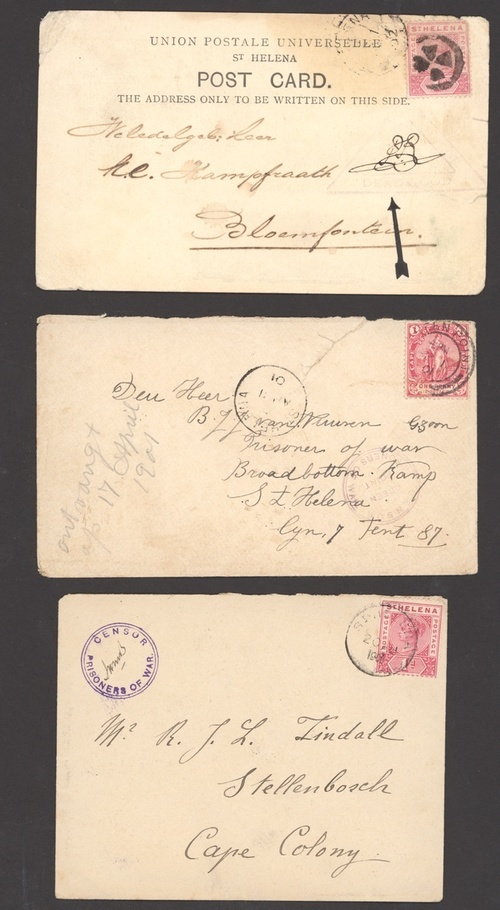 UNION POSTALE UNIVERSELLE
ST HELENA
POST CARD.
THE ADDRESS ONLY TO BE WRITTEN ON THIS SIDE.
ST HELENA
POSTAGE
Weledelgeb: Heer
Kampfraath
Bloemfontein.
ONE PENNY
Den Heer
B. J. van Gzoon
Prisoner of war
Broadbottom Kamp
St Helena
Tent 87.
ontvangt
op 17 April
1901
ST HELENA
POSTAGE
POSTAGE
CENSOR
PRISONERS OF WAR.
Mr. R. J. L. Tindall
Stellenbosch
Cape Colony.